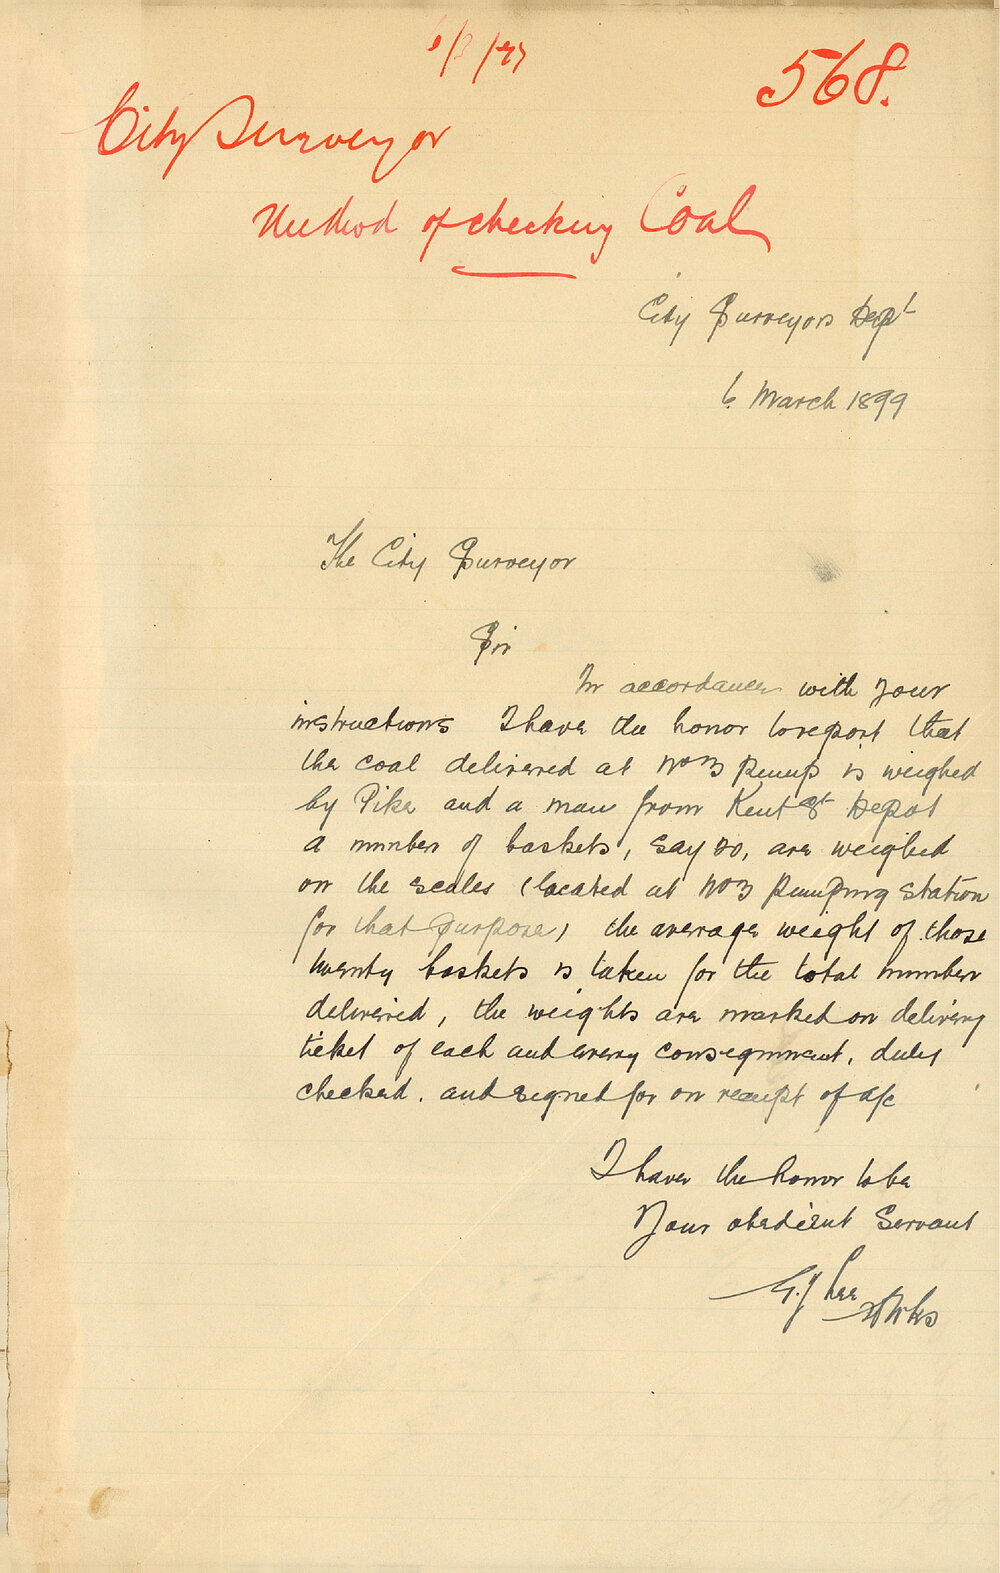 6/3/99
568.
City Surveyor
Method of checking Coal
City Surveyors Dept
6 March 1899
The City Surveyor
Sir
In accordance with your
instructions I have the honor to report that
the coal delivered at No 3 Pump is weighed
by Pike and a man from Kent St Depot
a number of baskets, say 20, are weighed
on the scales (located at No 3 Pumping Station
for that purpose) the average weight of those
twenty baskets is taken for the total number
delivered, the weights are marked on delivery
ticket of each and every consignment, duly
checked. and signed for on receipt of a/c
I have the honor to be
Your obedient Servant
Lee